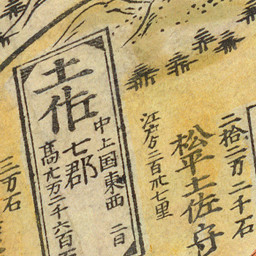 二拾二万二千石
松平土佐守
江戸ゟ二百卅七里
中上国東西二日
土佐
七郡
高九万二千六百石
三万石